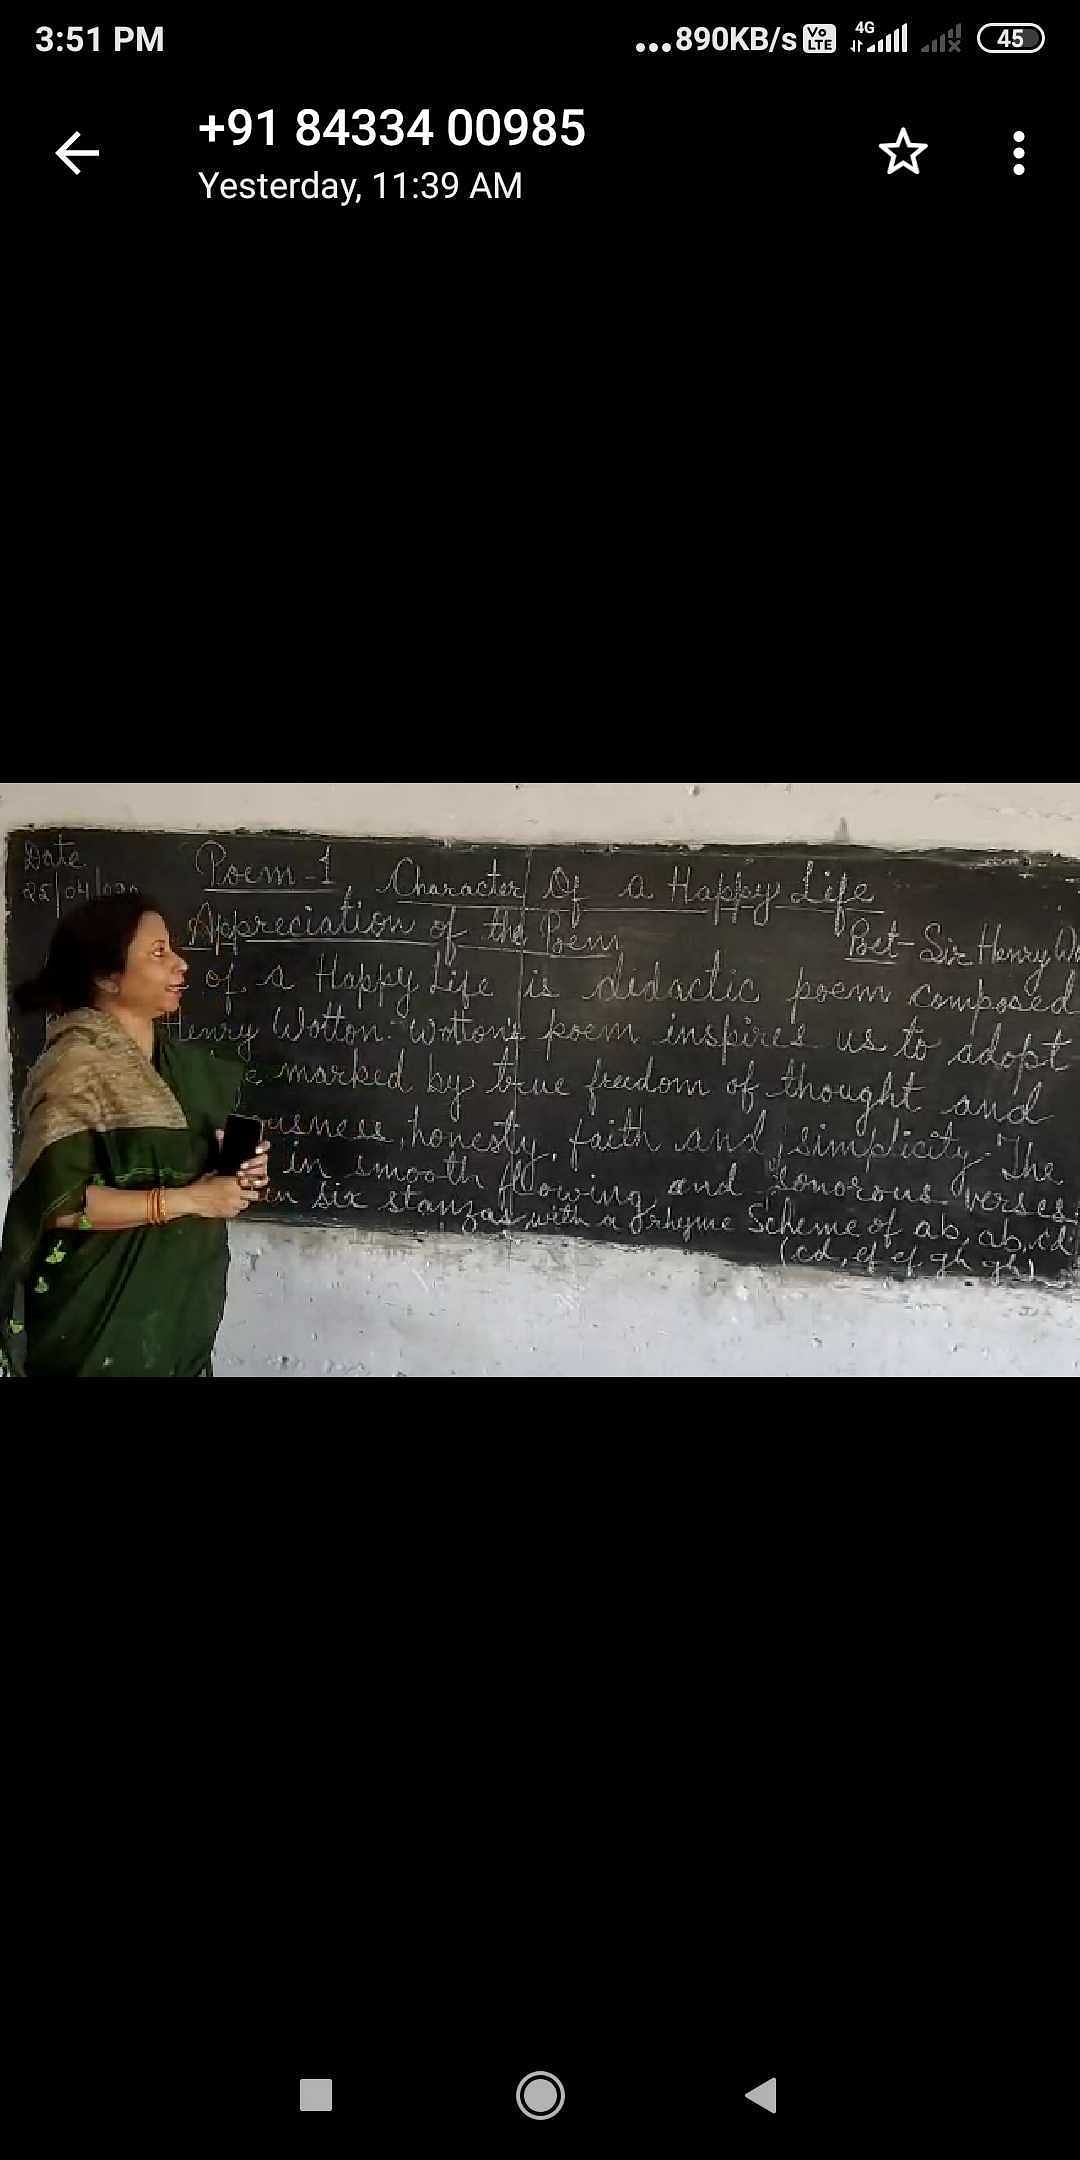 3:51 PM
...890KB/s Vo LTE 4G 45
+91 84334 00985
Yesterday, 11:39 AM
Date
25/04/
Poem-1, Character Of a Happy Life
Appreciation of the Poem
Poet- Sir Henry Wo
of a Happy Life is didactic poem composed
Henry Wotton. Wotton's poem inspires us to adopt
e marked by true freedom of thought and
ousness, honesty, faith and simplicity. The
in smooth flowing and sonorous verses
in six stanzas with a rhyme Scheme of ab, ab, cd
(cd, ef ef gh gh)